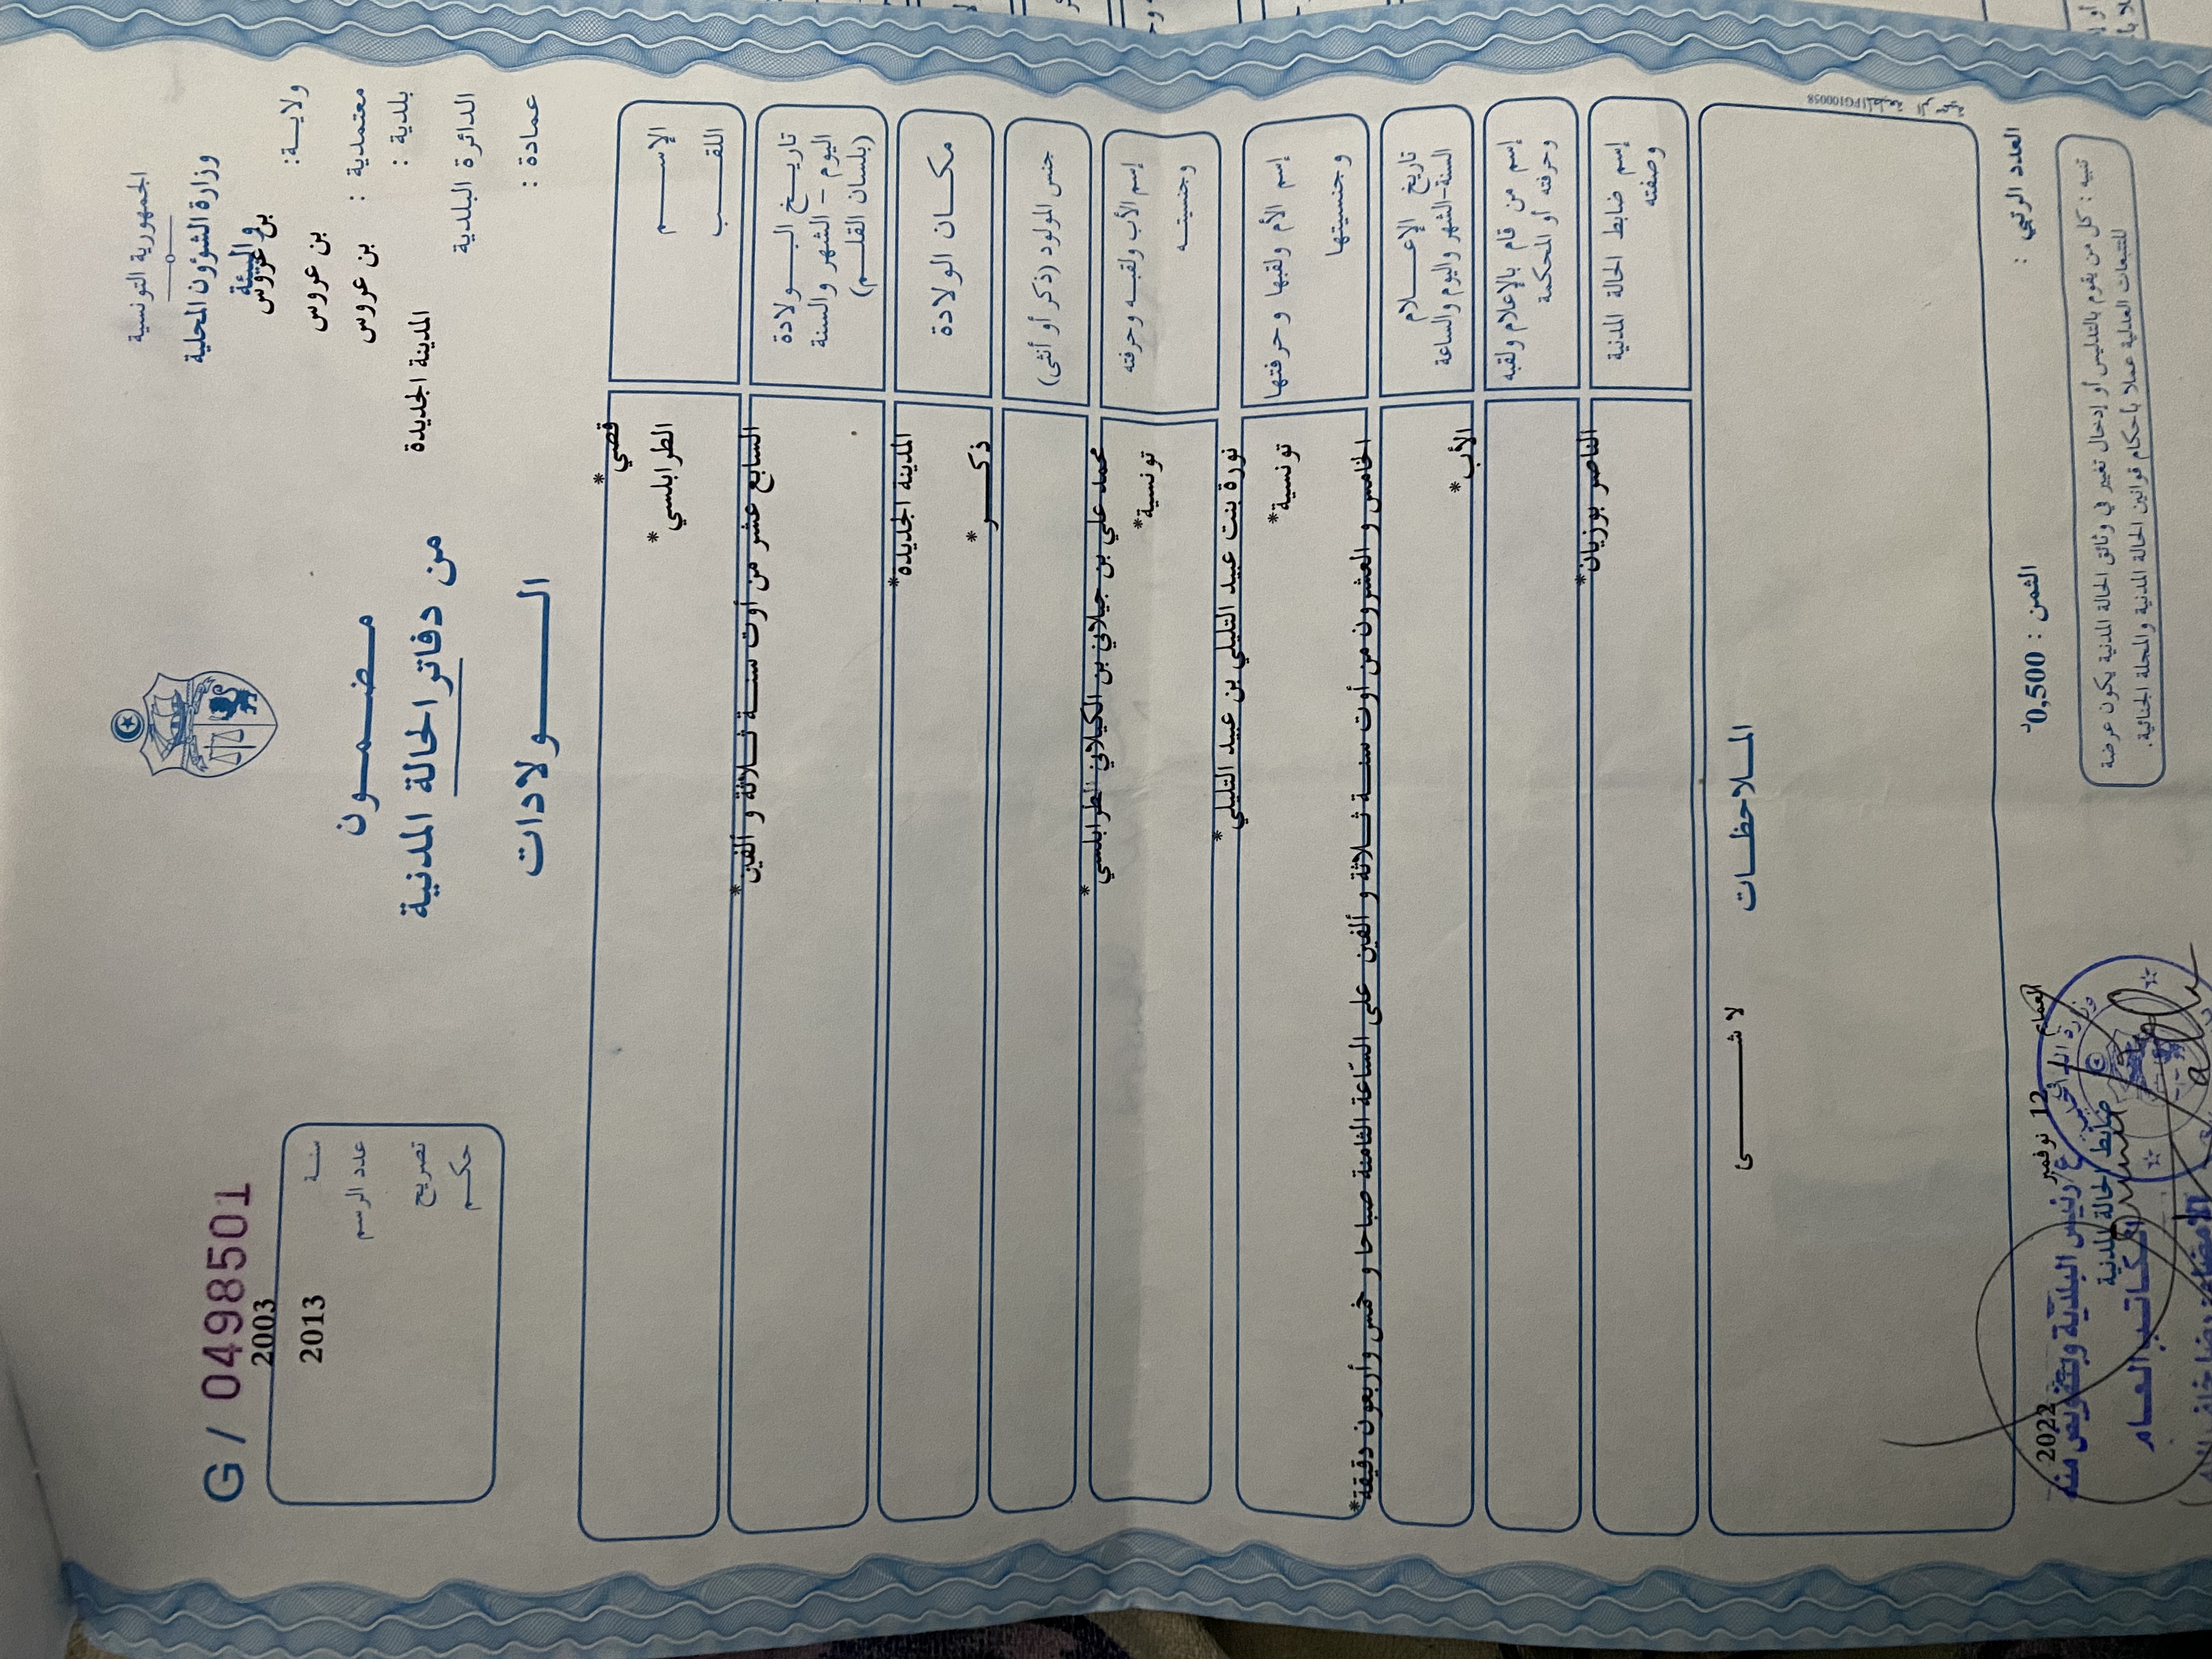 الجمهورية التونسية
وزارة الشؤون المحلية
والبيئة
ولاية:
بن عروس
معتمدية :
بن عروس
بلدية :
بن عروس
الدائرة البلدية
المدينة الجديدة
عمادة :
مضمون
من دفاتر الحالة المدنية
الولادات
G / 0498501
سنة
2003
عدد الرسم
2013
تصريح
حكم
الإسم
قصي*
اللقب
الطرابلسي*
تاريخ الولادة
اليوم - الشهر والسنة
(بلسان القلم)
السابع عشر من أوت سنة ثلاثة و ألفين*
مكان الولادة
المدينة الجديدة*
جنس المولود (ذكر أو أنثى)
ذكر*
إسم الأب ولقبه وحرفته
وجنسيته
محمد علي بن جيلاني بن الكيلاني الطرابلسي*
تونسية*
إسم الأم ولقبها وحرفتها
وجنسيتها
نورة بنت عبيد التليلي بن عبيد التليلي*
تونسية*
تاريخ الإعلام
السنة-الشهر واليوم والساعة
الخامس و العشرون من أوت سنة ثلاثة و ألفين على الساعة الثامنة صباحا و خمس وأربعون دقيقة*
إسم من قام بالإعلام ولقبه
وحرفته أو المحكمة
الأب*
إسم ضابط الحالة المدنية
وصفته
الناصر بوزيان*
الملاحظات
لا شئ
المطبعة الرسمية FG100058
العدد الرتبي :
الثمن : 0,500 د
12 نوفمبر 2022
ضابط الحالة المدنية
ع/رئيس البلدية وبتفويض منه
الكاتب العام
تنبيه : كل من يقوم بالتدليس أو إدخال تغيير في وثائق الحالة المدنية يكون عرضة
للتتبعات العدلية عملا بأحكام قوانين الحالة المدنية والمجلة الجنائية.